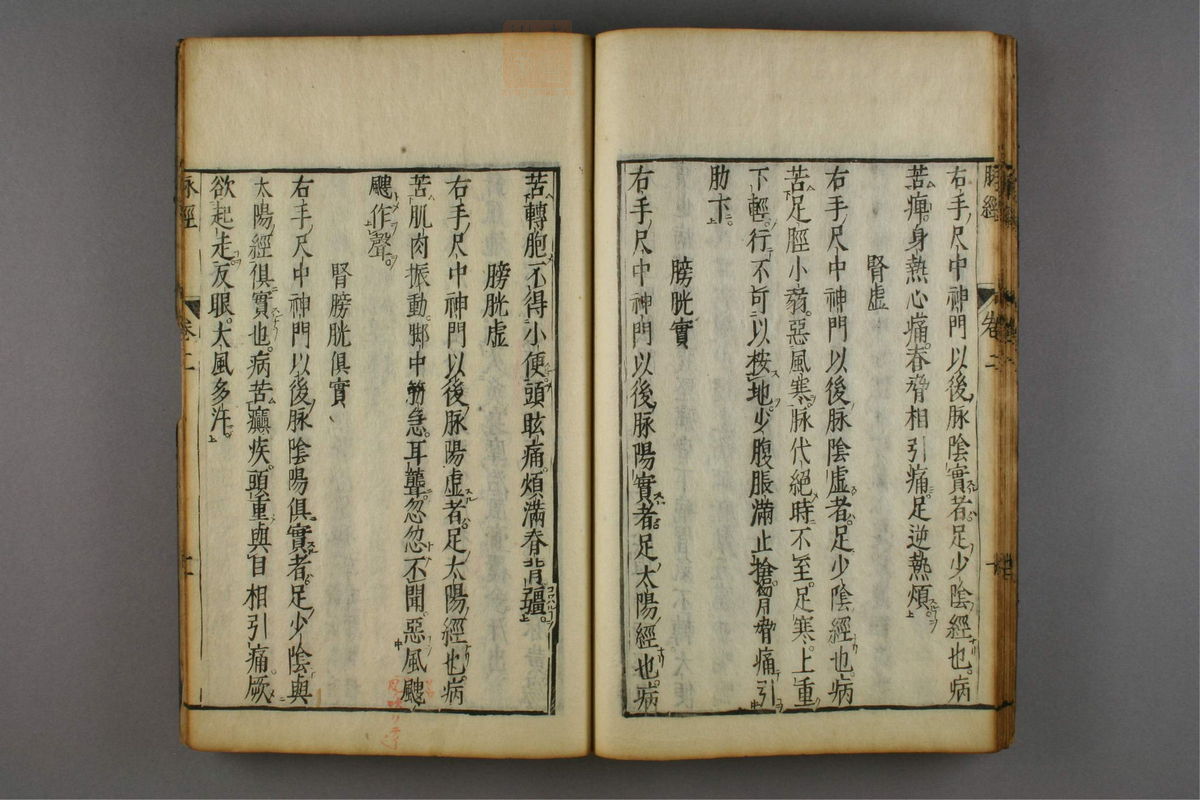 脉經 卷二
右手尺中神門以後脉陰實者足少陰經也病
苦痺身熱心痛脊脅相引痛足逆熱煩
腎虚
右手尺中神門以後脉陰虚者足少陰經也病
苦足脛小弱惡風寒脉代絕時不至足寒上重
下輕行不可以桉地少腹脹滿上搶胷脅痛引
肋下
膀胱實
右手尺中神門以後脉陽實者足太陽經也病
苦轉胞不得小便頭眩痛煩滿脊背彊
膀胱虚
右手尺中神門以後脉陽虚者足太陽經也病
苦肌肉振動脚中筋急耳聾忽忽不聞惡風颼
颼作聲
腎膀胱俱實
右手尺中神門以後脉陰陽俱實者足少陰與
太陽經俱實也病苦癲疾頭重與目相引痛厥
欲起走反眼大風多汗
脉經 卷二